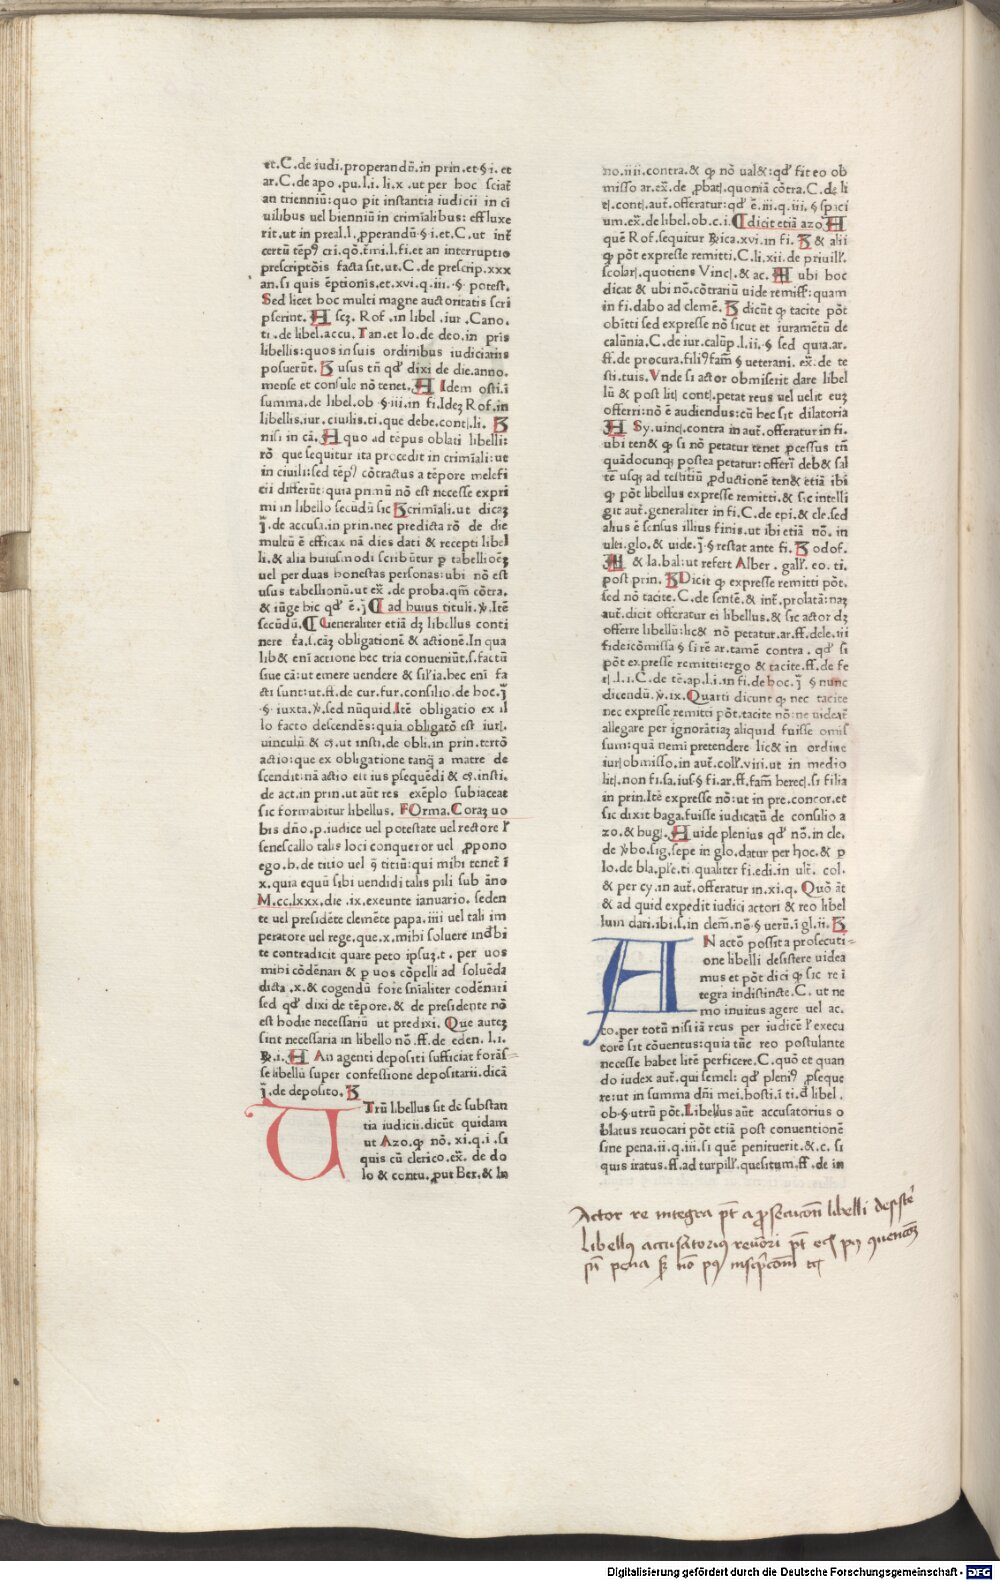 et.C.de iudi.properandū.in prin.et.§.i. et
ar.C.de apo.pu.l.i. li.x .ut per hoc sciat̄
an trienniū:quo pit instantia iudicii in ci
uilibus uel bienniū in crimīalibus: effluxe
rit.ut in preal.l.ꝓperandū.§.i.et.C.ut int̄
certū tēpꝰ cri.qō.t̄mi.l.fi.et an interruptio
prescriptōis facta sit.ut.C.de prescrip.xxx
an.si quis ēptionis.et.xvi.q.iii.§. potest.
Sed licet hoc multi magne auctoritatis scri
pserint. A scꝫ. Rof .in libel .iur .Cano.
ti.de libel.accu. Tan.et Io.de deo.in pris
libellis:quos in suis ordinibus iudiciariis
posuerūt. B usus tn̄ qd̓ dixi de die.anno.
mense et consule nō tenet. A Idem osti.ī
summa.de libel.ob .§.iii.in fi.Ideꝫ Rof.in
libellis.iur.ciuilis.ti.que debe.contꝭ.li. B
nisi in cā. A quo ad tēpus oblati libelli:
rō que sequitur ita procedit in crimīali: ut
in ciuili:sed tēpꝰ cōtractus a tēpore melefi
cii differūt:quia primū nō est necesse expri
mi in libello secūdū sic B crimīali.ut dicaꝫ
j̄.de accusa.in prin.nec predicta rō de die
multū ē efficax nā dies dati & recepti libel
li.& alia huiusmodi scribūtur p tabellioēꝫ
uel per duas honestas personas:ubi nō est
usus tabellionū.ut ex̄ .de proba.qm̄ cōtra.
& iūge hic qd̓ ē.j̄ ¶ ad huius tituli.ꝟ.Itē
secūdū. ¶ Generaliter etiā dꝫ libellus conti
nere t̄a.ſ.caꝫ obligationē & actionē.In qua
lib& eni actione hec tria conueniūt.s.factū
siue cā:ut emere uendere & sil̓ia.hec eni fa
cti sunt:ut.ff.de cur.fur.consilio.de hoc.j̄
.§. iuxta.ꝟ.sed nūquid.Itē obligatio ex il
lo facto descendēs:quia obligatō est iurꝭ.
uinculū & cꝭ.ut insti.de obli.in prin.tertō
actio:que ex obligatione tanq̄ a matre de
scendit:nā actio est ius psequēdi & cꝭ.insti.
de act.in prin.ut aūt res exēplo subiaceat
sic formabitur libellus. FOrma.Coraꝫ uo
bis dn̄o.p.iudice uel potestate uel rectore l̓
senescallo talis loci conqueror uel ꝓpono
ego.b.de titio uel ꝯ titiū:qui mihi tenet̄ ī
x.quia equū sibi uendidi talis pili sub āno
M.cc.lxxx.die .ix.exeunte ianuario. seden
te uel presidēte clemēte papa.iiii uel tali im
peratore uel rege.que.x.mihi soluere īndebi
te contradicit quare peto ipsuꝫ.t. per uos
mihi cōdēnari & p uos cōpelli ad soluēda
dicta .x.& cogendū fore sn̄ialiter codēnari
sed qd̓ dixi de tēpore.& de presidente nō
est hodie necessariū ut predixi. Que auteꝫ
sint necessaria in libello nō.ff.de eden. l.i.
℞.i. A An agenti depositi sufficiat forās
se libellū super confessione depositarii.dicā
j̄.de deposito. B
UTrū libellus sit de substan
tia iudicii.dicūt quidam
ut Azo.ꝙ nō. xi.q.i .si
quis cū clerico.ex̄. de do
lo & contu.ꝓut Ber.& In
no.iiii.contra.& ꝙ nō ual&:qd̓ fit eo ob
misso ar.ex̄.de ꝓbatꝭ.quoniā cōtra.C.de li
tꝭ.contꝭ.aut̄.offeratur:qd̓ ē.iii.q.iii.§ spaci
um.ex̄.de libel.ob.c.i. ¶ dicit etiā azo A
quē Rof.sequitur ℞ica.xvi.in fi. B & alii
ꝙ pōt expresse remitti.C.li.xii.de priuill̓.
scolarꝭ.quotiens Vincꝭ.& ac. A ubi hoc
dicat & ubi nō.cōtrariū uide remissꝭ:quam
in fi.dabo ad clemē. B dicūt ꝙ tacite pōt
obītti sed expresse nō sicut et iuramētū de
calūnia.C.de iur.calūp.l.ii.§ sed quia.ar.
ff.de procura.filiꝰfam̄ § ueterani. ex̄.de te
sti.tuis. Vnde si actor obmiserit dare libel
lū & post litꝭ contꝭ.petat reus uel uelit euꝫ
offerri:nō ē audiendus:cū hec sit dilatoria
A Sy.uincꝭ.contra in aut̄.offeratur in fi.
ubi ten& ꝙ si nō petatur tenet pcessus tn̄
quādocunqꝫ postea petatur:offerri deb& sal
tē usqꝫ ad testitiū ꝓductionē ten& etiā ibi
ꝙ pōt libellus expresse remitti.& sic intelli
git aut̄.generaliter in fi.C.de epi.& cle.sed
alius ē sensus illius finis.ut ibi etiā nō. in
ulti.glo.& uide.j̄.§ restat ante fi. B odof.
A & Ia.bal:ut refert Alber . gall̓. eo. ti.
post prin. B Dicit ꝙ expresse remitti pōt.
sed nō tacite.C.de sentē.& int̄.prolatā:naꝫ
aut̄.dicit offeratur ei libellus.& sic actor dꝫ
offerre libellū:lic& nō petatur.ar.ff.dele.iii
fideicōmissa § si rē ar.tamē contra . qd̓ si
pōt expresse remitti:ergo & tacite.ff.de fe
rꝭ.l.i.C.de tē.ap.l.i.in fi.de hoc.j̄ § nunc
dicendū.ꝟ.ix.Quarti dicunt ꝙ nec tacite
nec expresse remitti pōt.tacite nō:ne uideat̄
allegare per ignorātiaꝫ aliquid fuisse omis
sum:quā nemi pretendere lic& in ordine
iurꝭobmisso.in aut̄.coll̓.viii.ut in medio
litꝭ.non fi.sa.ius§ fi.ar.ff.fam̄ hercꝭ.si filia
in prin.Itē expresse nō:ut in pre.concor.et
sic dixit baga.fuisse iudicatū de consilio a
zo.& bugꝭ. A uide plenius qd̓ nō.in cle.
de ꝟbo.sig.sepe in glo.datur per hoc.& p
Io.de bla.pse.ti.qualiter fi.edi.in ult̄. col.
& per cy.in aut̄.offeratur in.xi.q. Quō āt
& ad quid expedit iudici actori & reo libel
lum dari.ibi.s.in clem̄.nō.§ uerū.ī gl.ii. B
AN actō possit a prosecuti-
one libelli desistere uidea
mus et pōt dici ꝙ sic re i
tegra indistincte.C. ut ne
mo inuitus agere uel ac.
co.per totū nisi iā reus per iudicē l̓ execu
torē sit cōuentus:quia tūc reo postulante
necesse habet litē perficere.C.quō et quan
do iudex aut̄.qui semel: qd̓ pleniꝰ ꝓseque
re:ut in summa dn̄i mei.hosti.ī ti.d̓ libel.
ob.§.utrū pōt. Libellus aūt accusatorius o
blatus reuocari pōt etiā post conuentionē
sine pena.ii.q.iii.si quē penituerit.&.c. si
quis iratus.ff.ad turpill̓.quesitum.ff.de in
Actor re integra pt̄ a ꝓsecucōn libelli desistē
Libellꝰ accusatoriꝰ reuōri pt̄ ecꝭ pꝰ ꝯuencōꝫ
sn̄ pena sꝫ nō pꝰ inscp̄cōm̄ cꝭ
Digitalisierung gefördert durch die Deutsche Forschungsgemeinschaft - DFG